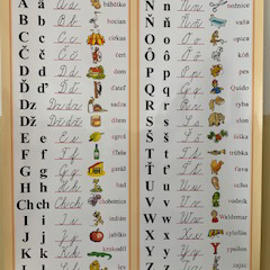 A a A a bábätko
B b B b bocian
C c C c cirkus
Č č Č č čert
D d D d dom
Ď ď Ď ď ďateľ
Dz dz Dz dz
Dž dž Dž dž džem
E e E e egreš
F f F f fľaša
G g G g garáž
H h H h had
Ch ch Ch ch chobotnica
I i I i indián
J j J j jablko
K k K k krokodíl
N n N n nožnice
Ň ň Ň ň vaňa
O o O o opica
Ô ô Ô ô
P p P p pes
Q q Q q Quido
R r R r ryba
S s S s slon
Š š Š š
T t T t trúbka
Ť ť Ť ť ťava
U u U u
V v V v
W w W w Waldemar
X x X x xylofón
Y y Y y ypsilon
Z z Z z zajac